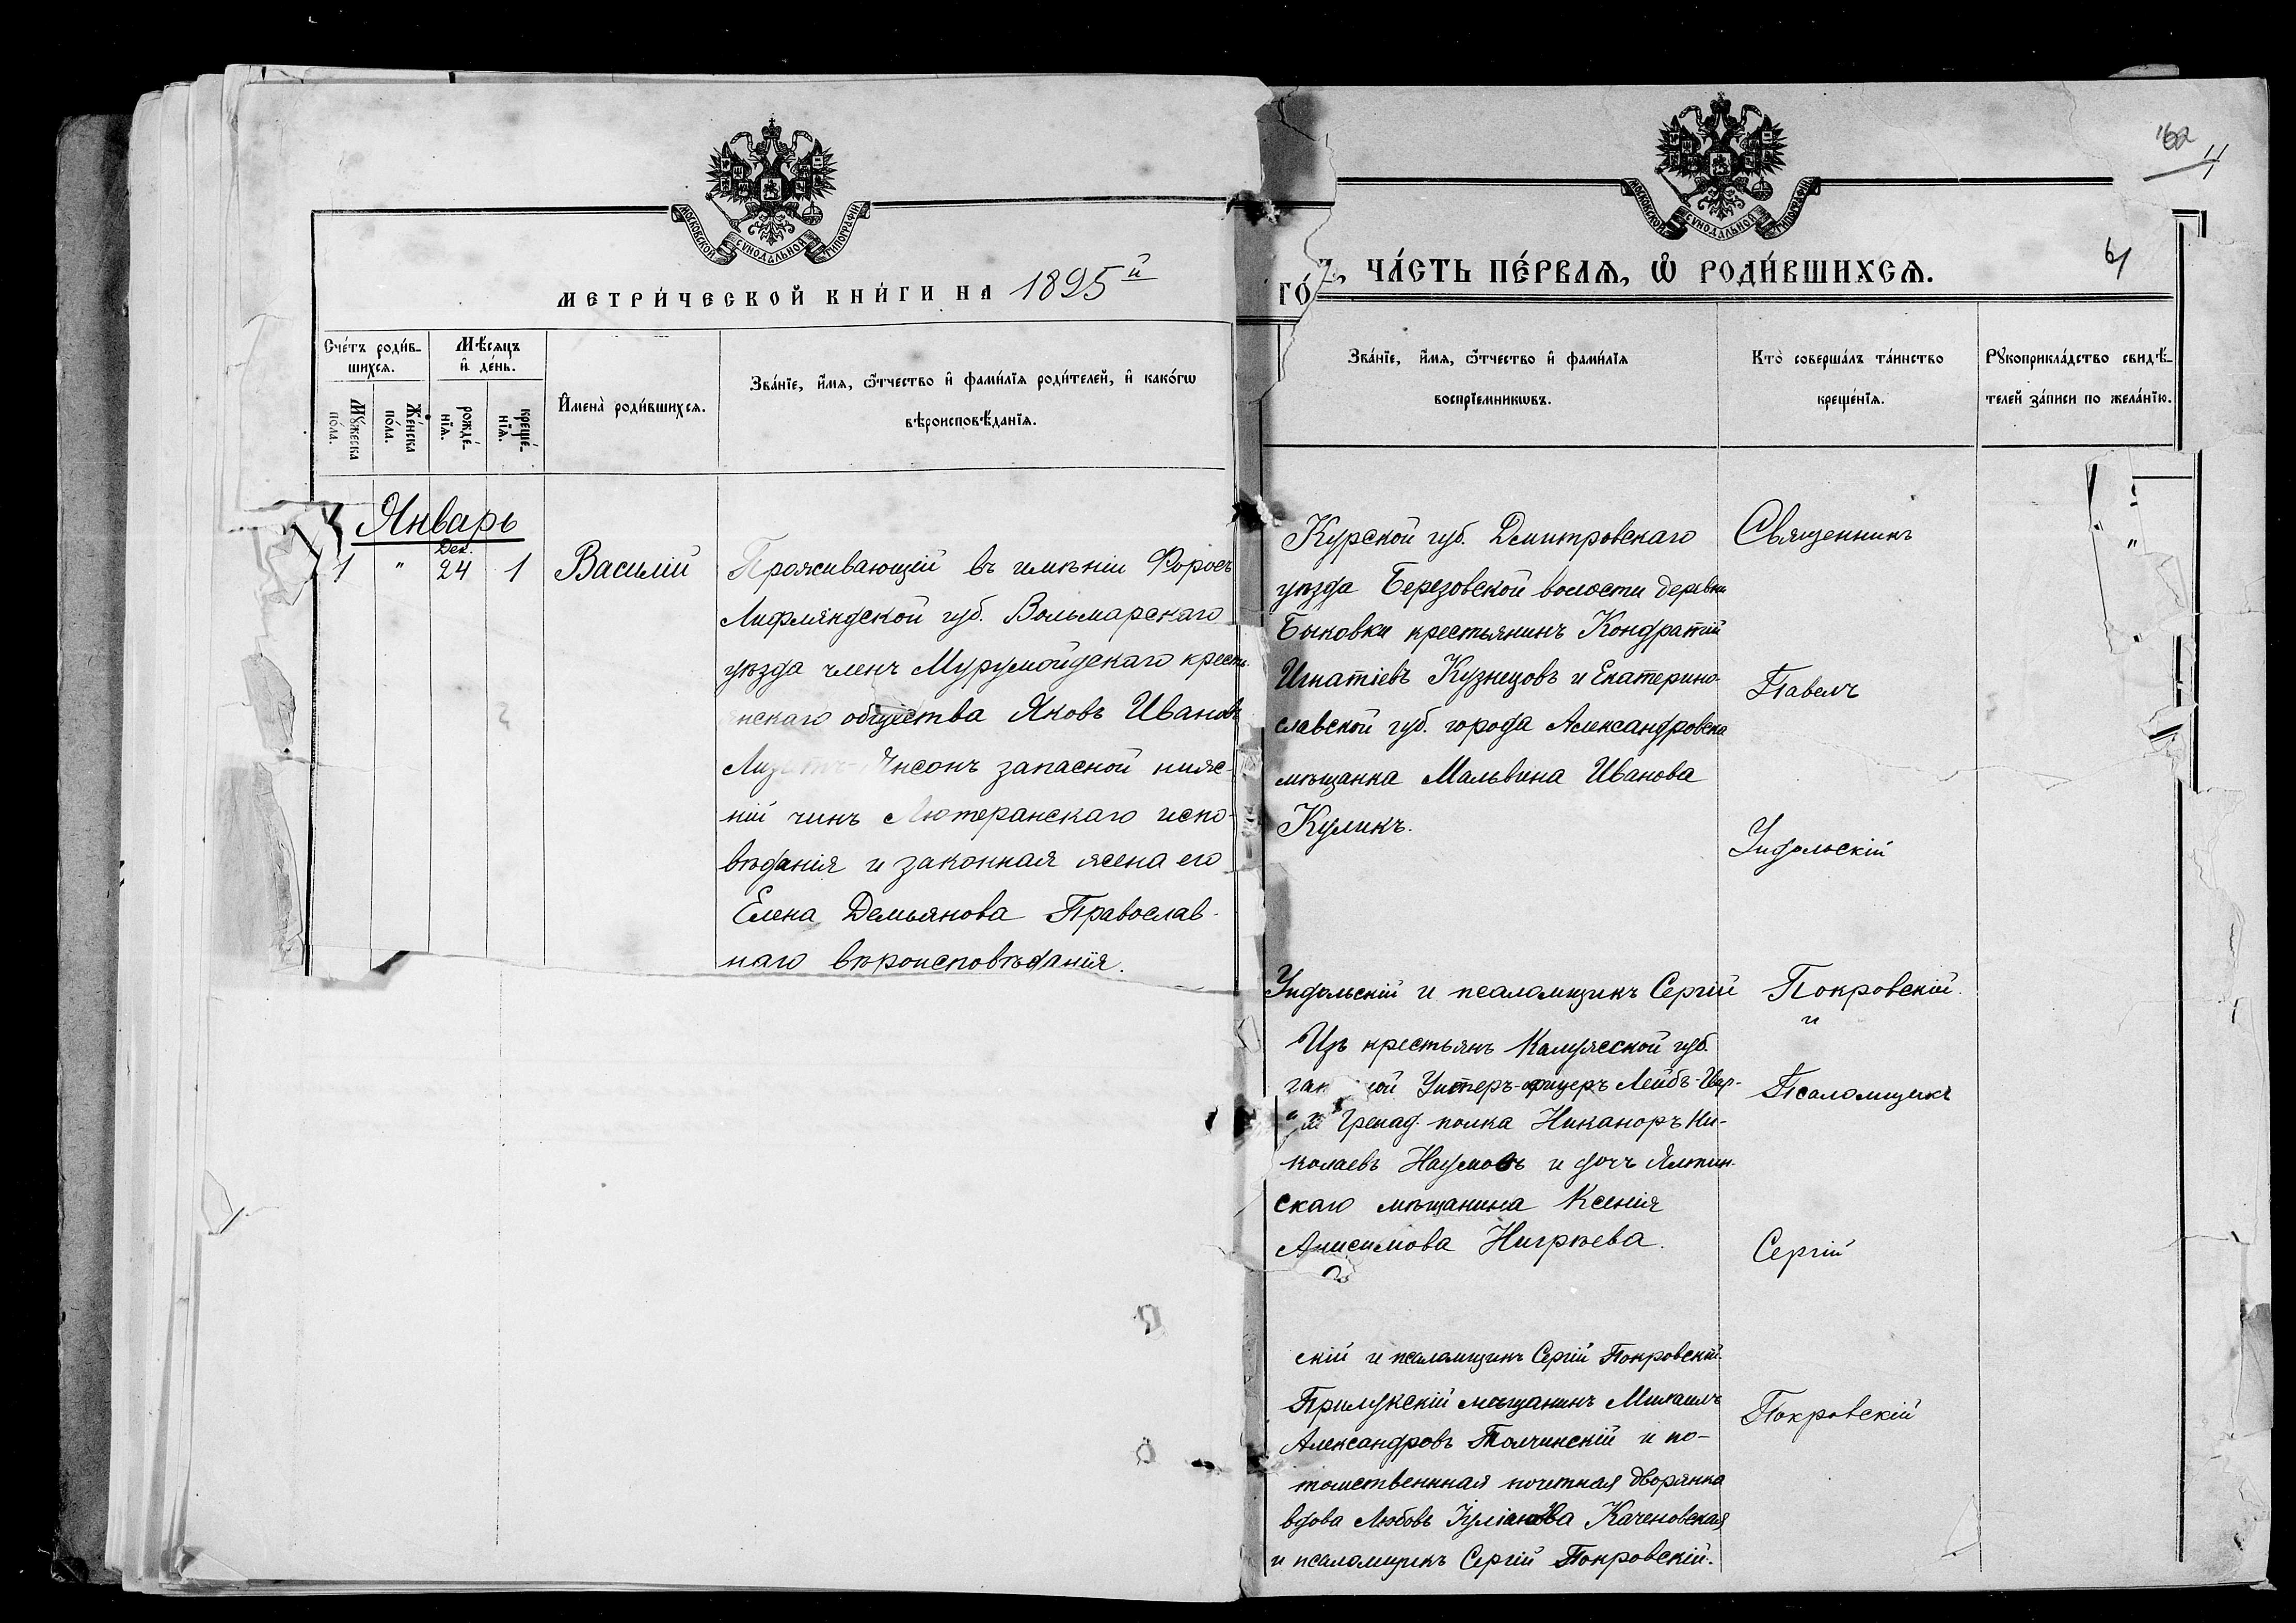 МОСКОВСКОЙ СѴНОДАЛЬНОЙ ТИПОГРАФІИ
МЕТРИ́ЧЕСКОЙ КНИ́ГИ НА 1895й
Сче́тъ роди́в-
шихсѧ.
Мѣ́сѧцъ
и҆ де́нь.
Мꙋ́жеска
по́ла.
Же́нска
по́ла.
рожде́-
нїѧ.
креще́-
нїѧ.
И҆мена̀ роди́вшихсѧ.
Зва́нїе, и҆́мѧ, ѻ҆́тчество и҆ фами́лїѧ роди́телей, и҆ како́гѡ
вѣроисповѣ́данїѧ.
Январь
Дек.
1 " 24 1 Василій
Проживающій въ имѣніи Форосъ
Лифляндской губ. Вольмарскаго
уѣзда членъ Мурумойзскаго кресть
янскаго общества Яковъ Ивановъ
Янсонъ запасной ниж-
ній чинъ Лютеранскаго испо-
вѣданія и законная жена его
Елена Демьянова Православ-
наго вѣроисповѣданія.
162
4
61
МОСКОВСКОЙ СѴНОДАЛЬНОЙ ТИПОГРАФІИ
ГО́ ЧА́СТЬ ПЕ́РВАѦ, Ѡ҆ РОДИ́ВШИХСѦ.
Зва́нїе, и҆́мѧ, ѻ҆́тчество и҆ фами́лїѧ
воспрїемникѡвъ.
Кто̀ соверша́лъ та́инство
креще́нїѧ.
Рꙋкоприкла́дство свидѣ́-
телей за́писи по жела́нїю.
Курской губ. Дмитровскаго
уѣзда Березовской волости деревни
Быковки крестьянинъ Кондратій
Игнатіевъ Кузнецовъ и Екатерино-
славской губ. города Александровска
мѣщанка Мальвина Иванова
Куликъ.
Священникъ
Павелъ
Ундольскій
Ундольскій и псаломщикъ Сергій
Изъ крестьянъ Калужской губ.
Унтеръ-офицеръ Лейбъ-Гвар-
Гренад. полка Никаноръ Ни-
колаевъ Наумовъ и дочь Ялтин-
скаго мѣщанина Ксенія
Анисимова Нигрѣева.
Покровскій
и
Псаломщикъ
Сергій
скій и псаломщикъ Сергій Покровскій.
Прилукскій мѣщанинъ Михаилъ
Александровъ Толчинскій и по-
томственнная почетная дворянка
вдова Любовь Іуліанова Каченовская
и псаломщикъ Сергій Покровскій.
Покровскій